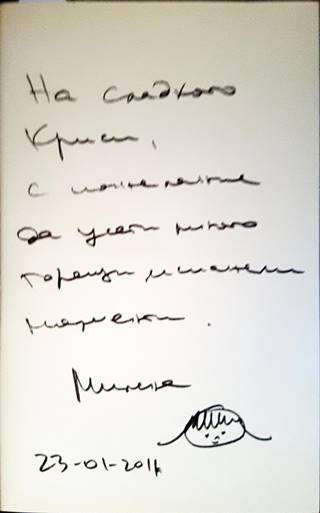 На сладкото
Криси,
с пожелание
да усети много
горещи и шантави
моменти.
Милена
23-01-2011